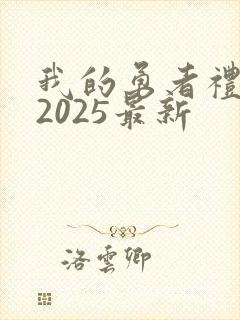 我的勇者禮
2025最新
洛雲卿